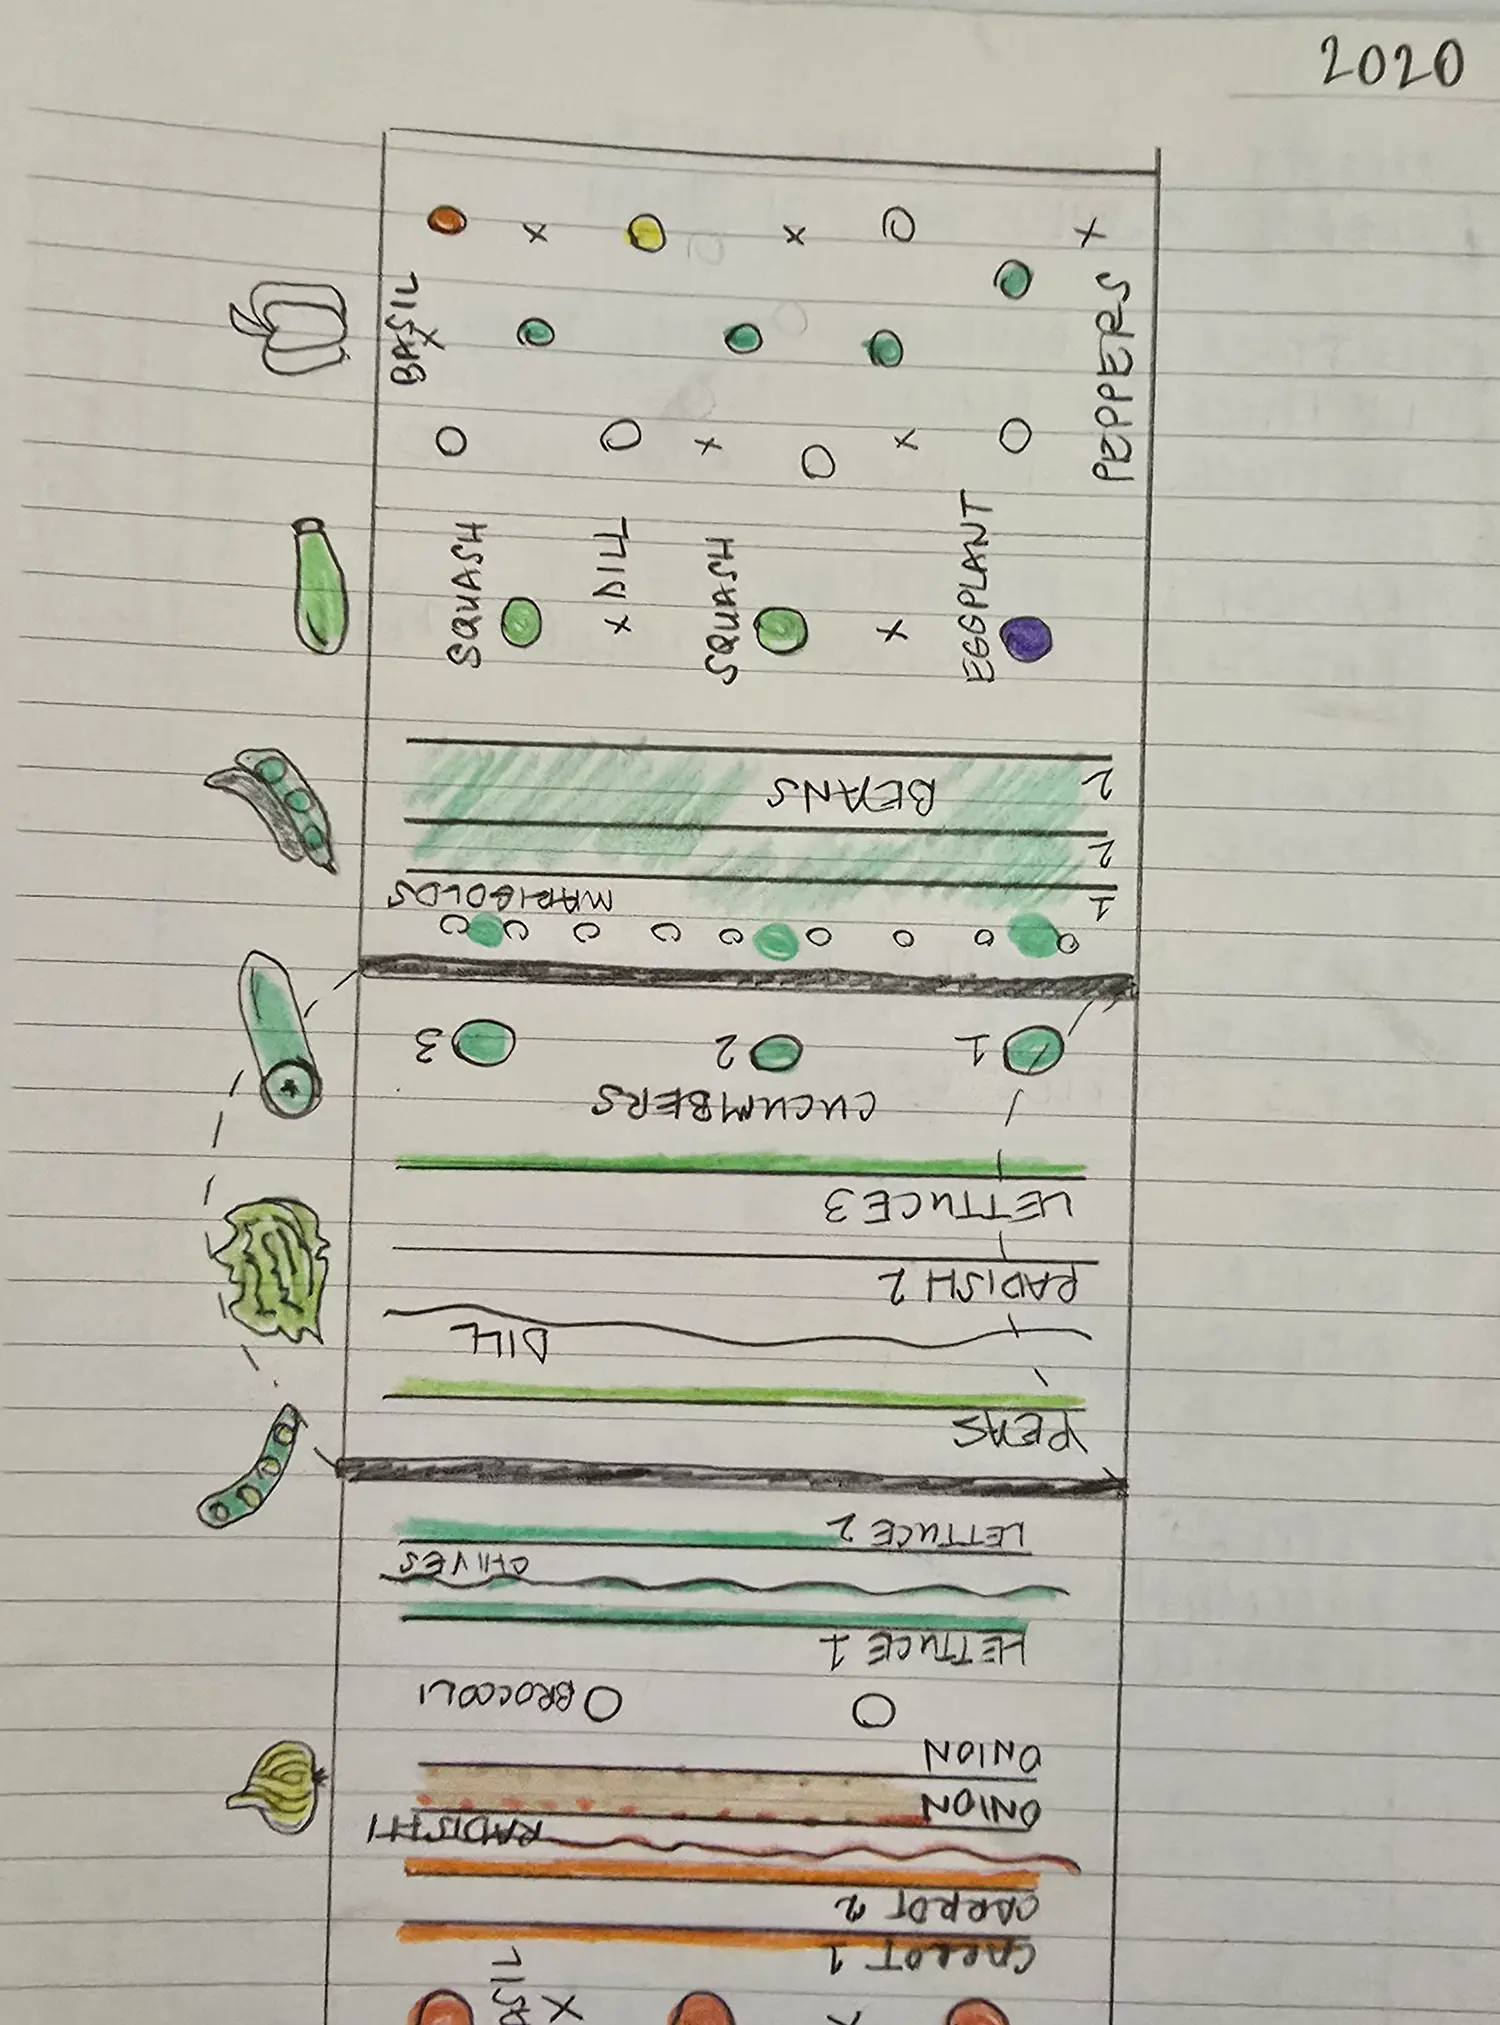 2020
BASIL
PEPPERS
SQUASH
X DILL
SQUASH
EGGPLANT
BEANS 2
2
MARIGOLDS 1
1 2 3
CUCUMBERS
LETTUCE 3
RADISH 2
DILL
PEAS
LETTUCE 2
CHIVES
LETTUCE 1
BROCCOLI
ONION
ONION
RADISH 1
CARROT 2
CARROT 1